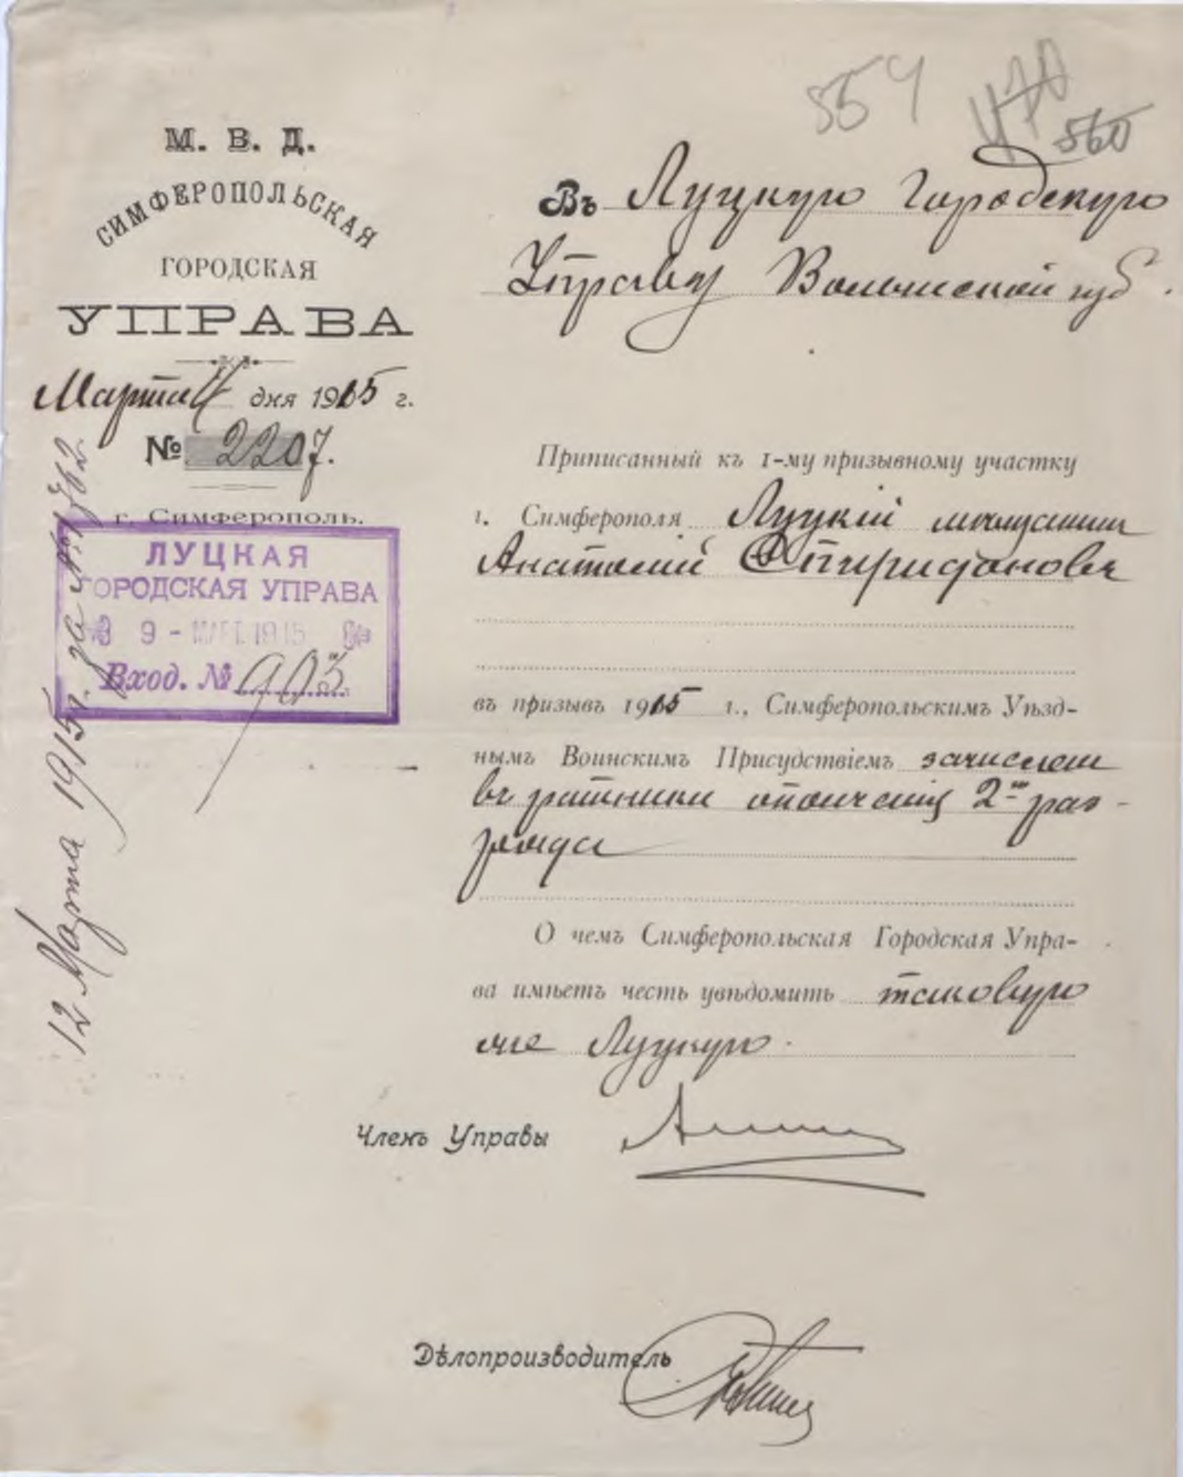 554
470
560
М. В. Д.
СИМФЕРОПОЛЬСКАЯ
ГОРОДСКАЯ
УПРАВА
Марта 4 дня 1915 г.
№ 2207.
г. Симферополь.
ЛУЦКАЯ
ГОРОДСКАЯ УПРАВА
9 - МАРТ. 1915
Вход. № 903
12 Марта 1915 г. за № 762
Въ Луцкую Городскую
Управу Волынской губ.
Приписанный къ 1-му призывному участку
г. Симферополя Луцкій мѣщанинъ
Анатолій Спиридоновъ
въ призывъ 1915 г., Симферопольскимъ Уѣзд-
нымъ Воинскимъ Присудствіемъ зачислен
въ ратники ополченія 2го раз-
ряда
О чемъ Симферопольская Городская Упра-
ва имѣетъ честь увѣдомить таковую
же Луцкую.
Членъ Управы
Дѣлопроизводитель